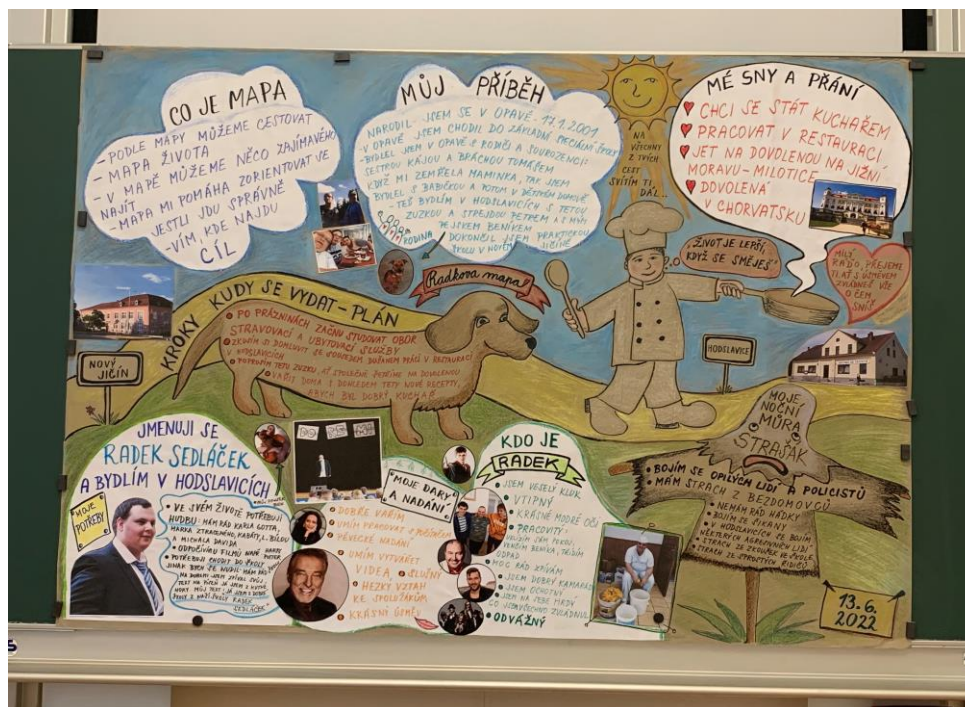 CO JE MAPA
- PODLE MAPY MŮŽEME CESTOVAT
- MAPA ŽIVOTA
- V MAPĚ MŮŽEME NĚCO ZAJÍMAVÉHO
NAJÍT
- MAPA MI POMÁHÁ ZORIENTOVAT SE
JESTLI JDU SPRÁVNĚ
- VÍM, KDE NAJDU
CÍL
MŮJ PŘÍBĚH
NARODIL JSEM SE V OPAVĚ 17.1.2001
V OPAVĚ JSEM CHODIL DO ZÁKLADNÍ SPECIÁLNÍ ŠKOLY
- BYDLEL JSEM V OPAVĚ S RODIČI A SOUROZENCI:
SESTROU KÁJOU A BRÁCHOU TOMÁŠEM
KDYŽ MI ZEMŘELA MAMINKA, TAK JSEM
BYDLEL S BABIČKOU A POTOM V DĚTSKÉM DOMOVĚ
- TEĎ BYDLÍM V HODSLAVICÍCH S TETOU
ZUZKOU A STREJDOU PETREM A S MÝM
PEJSKEM BENÍKEM
DOKONČIL JSEM PRAKTICKOU
ŠKOLU V NOVÉM JIČÍNĚ
RODINA
NA
VŠECHNY
Z TVÝCH
CEST
SVÍTÍM TI
DÁL...
MÉ SNY A PŘÁNÍ
CHCI SE STÁT KUCHAŘEM
PRACOVAT V RESTAURACI
JET NA DOVOLENOU NA JIŽNÍ
MORAVU - MILOTICE
DOVOLENÁ
V CHORVATSKU
Radkova mapa
"ŽIVOT JE LEPŠÍ,
KDYŽ SE SMĚJEŠ"
MILÝ
RAĎO, PŘEJEME
TI AŤ S ÚSMĚVEM
ZVLÁDNEŠ VŠE
O ČEM
SNÍŠ
KROKY KUDY SE VYDAT - PLÁN
PO PRÁZDNINÁCH ZAČNU STUDOVAT OBOR
STRAVOVACÍ A UBYTOVACÍ SLUŽBY
ZKUSÍM SI DOMLUVIT SE SOUSEDEM BOĎANEM PRÁCI V RESTAURACI
V HODSLAVICÍCH
POPROSÍM TETU ZUZKU, AŤ SPOLEČNĚ JEDEME NA DOVOLENOU
VAŘIT DOMA S DOHLEDEM TETY NOVÉ RECEPTY,
ABYCH BYL DOBRÝ KUCHAŘ
NOVÝ
JIČÍN
HODSLAVICE
JMENUJI SE
RADEK SEDLÁČEK
A BYDLÍM V HODSLAVICÍCH
MOJE
POTŘEBY
VE SVÉM ŽIVOTĚ POTŘEBUJI
HUDBU - MÁM RÁD KARLA GOTTA,
MARKA ZTRACENÉHO, KABÁTY, L. BÍLOU
A MICHALA DAVIDA
SEDLÁČEK
"MOJE DARY"
A NADÁNÍ
DOBŘE VAŘÍM
UMÍM PRACOVAT S POČÍTAČEM
PĚVECKÉ NADÁNÍ
UMÍM VYTVÁŘET
VIDEA, SLUŠNÝ
HEZKÝ VZTAH
KE SPOLUŽÁKŮM
KRÁSNÍ ÚSMĚV
KDO JE
RADEK
JSEM VESELÝ KLUK
VTIPNÝ
KRÁSNÉ MODRÉ OČI
PRACOVITÝ -
VENČÍM BENÍKA, TŘÍDÍM
ODPAD
MOC RÁD ZPÍVÁM
JSEM DOBRÝ KAMARÁD
JSEM OCHOTNÝ
JSEM NA SEBE HRDÝ
CO JSEM VŠECHNO ZVLÁDNUL
ODVÁŽNÝ
MOJE
NOČNÍ
MŮRA
STRAŠÁK
BOJÍM SE OPILÝCH LIDÍ A POLICISTŮ
MÁM STRACH Z BEZDOMOVCŮ
NEMÁM RÁD HÁDKY
BOJÍM SE ŠIKANY
V HODSLAVICÍCH SE BOJÍM
NĚKTERÝCH AGRESIVNÍCH LIDÍ
STRACH ZE ZKOUŠEK VE ŠKOLE
STRACH ZE SPROSTÝCH ŘIDIČŮ
13.6.
2022